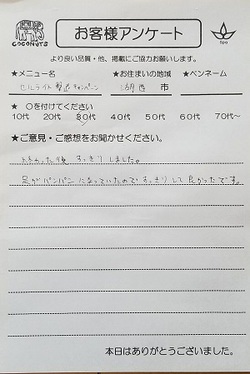 COCONUTS
お客様アンケート
より良い品質・他、掲載にご協力お願いします。
★メニュー名 ★お住まいの地域 ★ペンネーム
セルライト撃退キャンペーン 湖西 市
★ ○を付けてください
10代 20代 30代 40代 50代 60代 70代~
★ご意見・ご感想をお聞かせください。
終わった後 すっきりしました。
足がパンパンになっていたので すっきりして良かったです。
本日はありがとうございました。